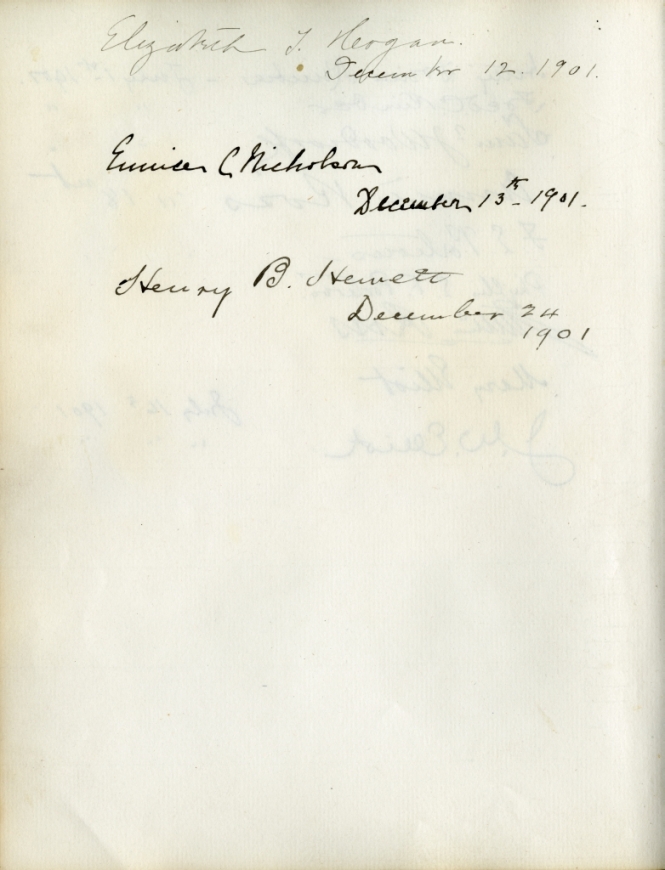 Elizabeth T. Horgan.
December 12. 1901.
Eunice C Nicholson
December 13th - 1901.
Henry B. Hewett
December 24
1901